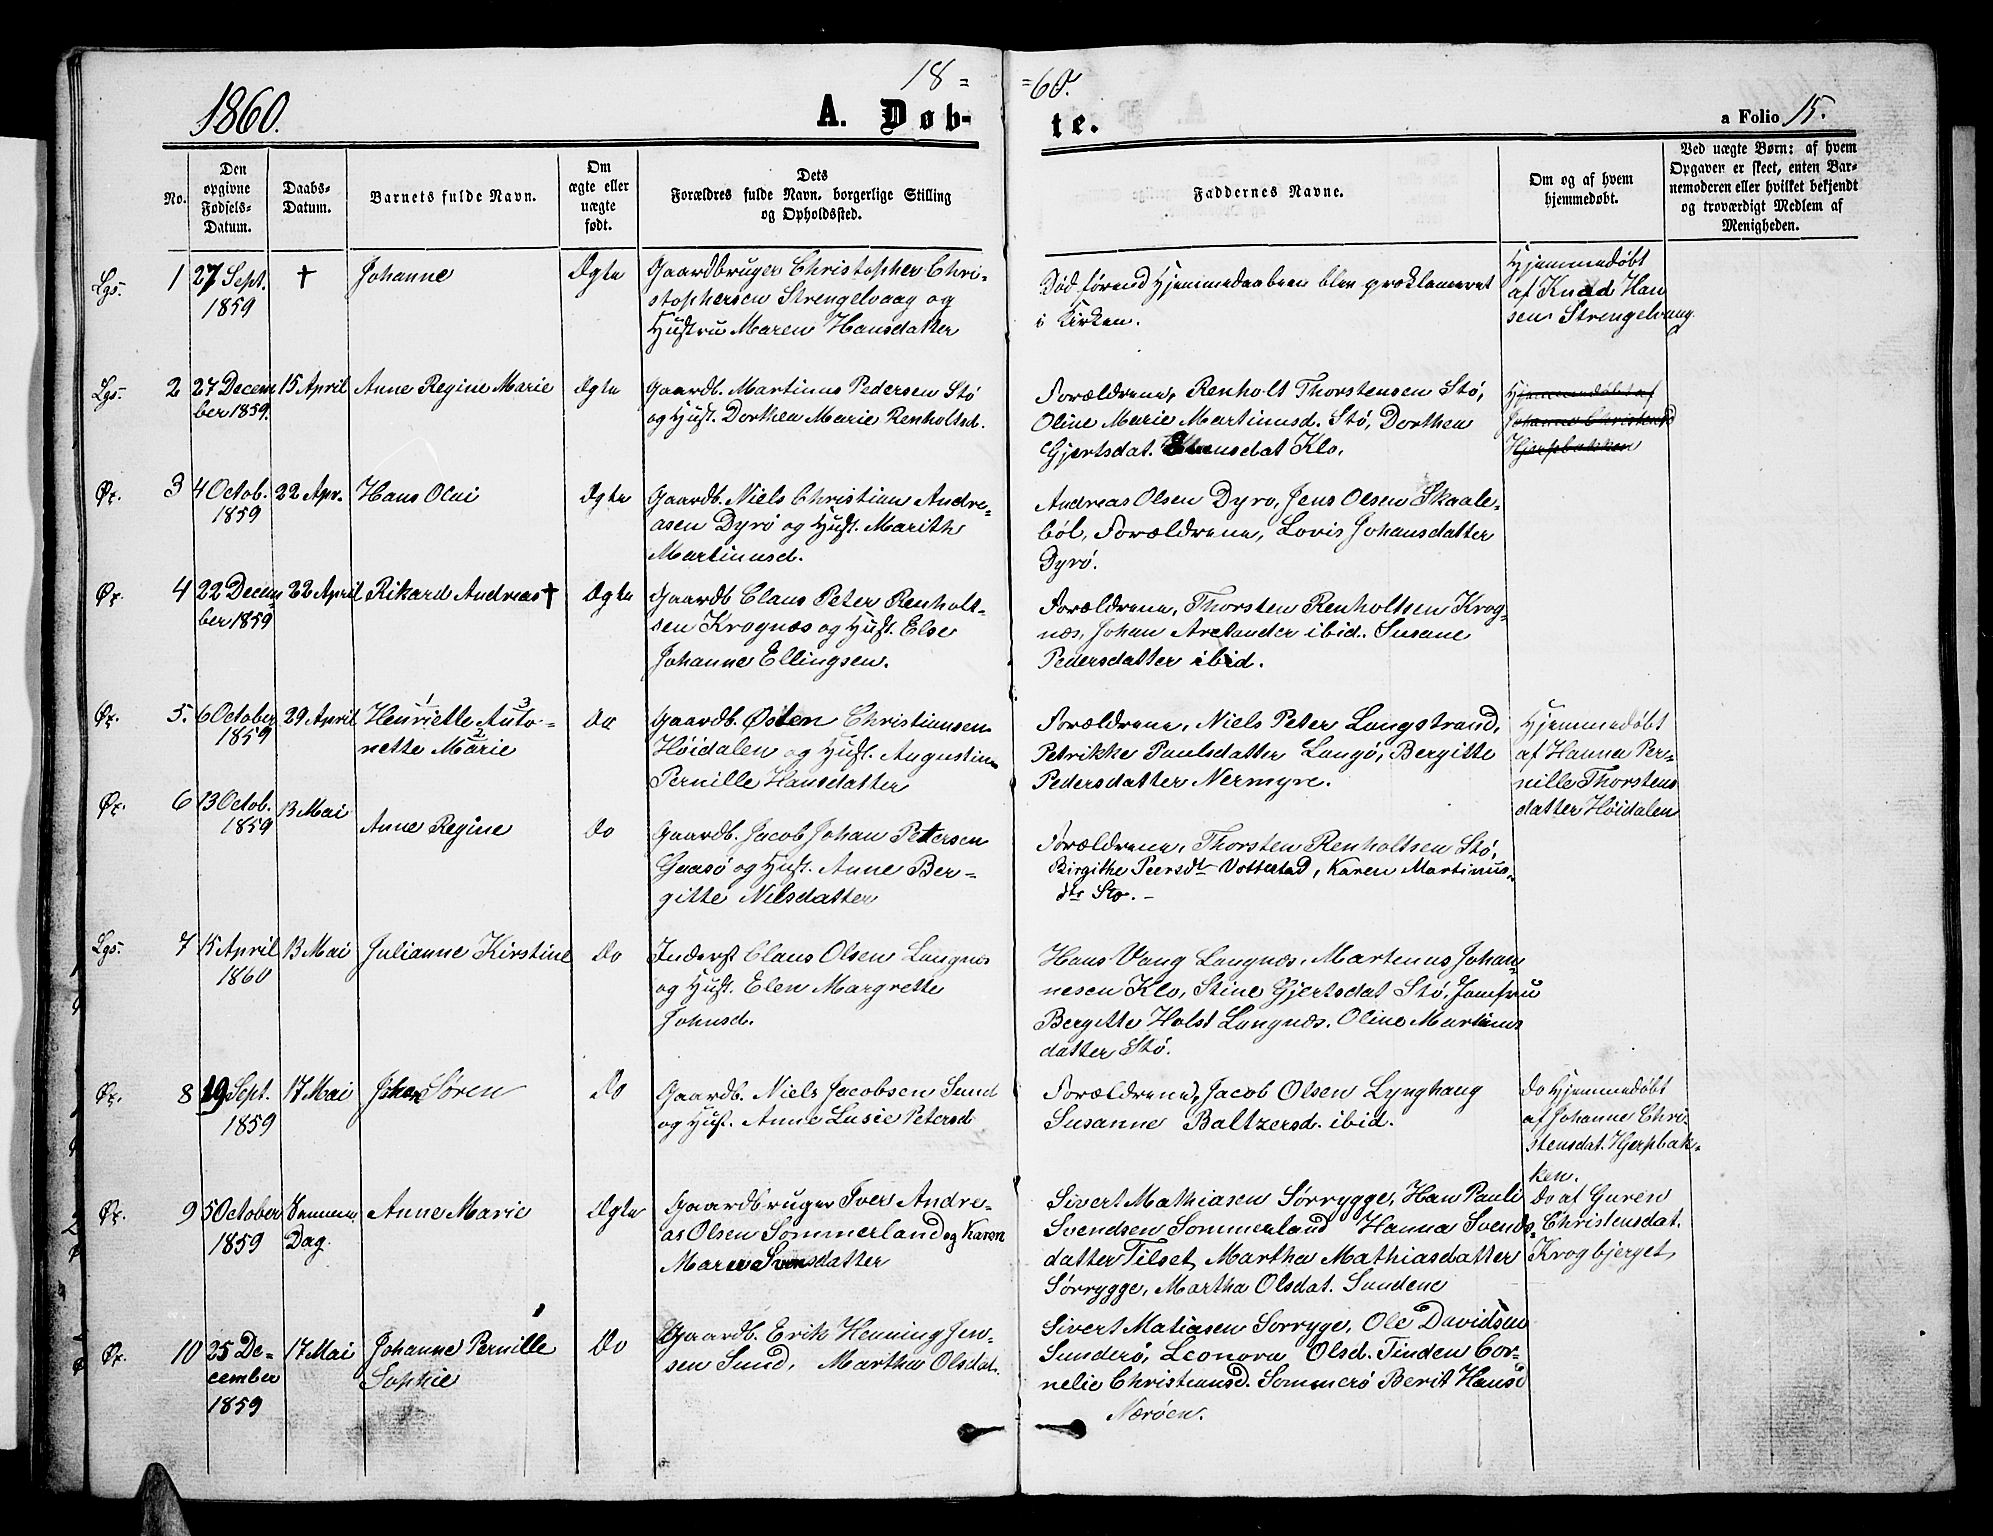 18 = = 60.
1860. A. Døb- te. a Folio 15.
No.
Den opgivne Fødsels-Datum.
Daabs-Datum.
Barnets fulde Navn.
Om ægte eller uægte født.
Dets Forældres fulde Navn, borgerlige Stilling og Opholdssted.
Faddernes Navne.
Om og af hvem hjemmedøbt.
Ved uægte Børn: af hvem Opgaven er skeet, enten Barnemoderen eller hvilket bekjendt og troværdigt Medlem af Menigheden.
Lgs. 1 27 Sept. † Johanne Ægte Gaardbruger Christopher Chri-
1859 stophersen Strengelvaag og
Hustru Maren Hansdatter
Død førend Hjemmedaaben blev proklameret
i Kirken.
Hjemmedøbt
af Knud Han
sen Strengelvaag
Lgs. 2 27 Decem 15 April Anne Regine Marie Ægte Gaardb. Martinus Pedersen Stø
ber 1859. og Hust. Dorthea Marie Renholtsd.
Forældrene, Renholt Thorstensen Stø,
Oline Marie Martinusd. Stø, Dorthea
Gjertsdat. Hansdat Klo.
Hjemmedøbt af
Johanne Christensd
Hjerpbakken
Øx. 3 4 Octob. 22 Apr. Hans Olai Ægte Gaardb. Niels Christian Andre-
1859 asen Dyrø og Hust. Marith
Martinusd.
Andreas Olsen Dyrø, Jens Olsen Skaale-
bøl, Forældrene, Lovis Johansdatter
Dyrø.
Øx. 4 22 Decem 22 April Rikard Andreas † Ægte Gaardb Claus Peter Renholt-
ber 1859 sen Krognæs og Hust. Else
Johanne Ellingsen.
Forældrene, Thorsten Renholtsen Krog-
næs, Johan Arctander ibid. Susane
Pedersdatter ibid.
Øx. 5. 6 October 29 April Henriette Anto- do Gaardb. Østen Christiansen
1859 nette Marie Høidalen og Hust. Augustine
Pernille Hansdatter
Forældrene, Niels Peter Langstrand,
Petrikke Paulsdatter Langø, Bergitte
Pedersdatter Nermyre.
Hjemmedøbt
af Hanna Per-
nille Thorstens
datter Høidalen
Øx. 6 13 Octob. 13 Mai Anne Regine do Gaardb. Jacob Johan Petersen
1859 Gaasø og Hust. Anne Ber-
gitte Nilsdatter
Forældrene, Thorsten Renholtsen Stø,
Birgithe Peersdt Vottestad, Karen Martinus-
dtr Stø. –
Lgs. 7 15 April 13 Mai Julianne Kirstine Do Inderst Claus Olsen Langnæs
1860 og Hust. Elen Margrette
Johnsd.
Hans Vang Langnæs, Martinus Johan-
nesen Klo, Stine Gjertsdat Stø, Jomfru
Bergitte Holst Langnæs. Oline Martinus
datter Stø.
Øx. 8 19 Sept. 17 Mai Johan Søren Do Gaardb. Niels Jacobsen Sund
1859 og Hust. Anne Lusie Petersd
Forældrene, Jacob Olsen Lynghaug
Susanne Baltzersd. ibid.
Do Hjemmedøbt
af Johanne Chri-
stensdat. Hjerpbak-
ken.
Øx. 9 5 October Sammme Anne Marie Ægte Gaardbruger Iver Andre-
1859 Dag. as Olsen Sommerland og Karen
Marie Svensdatter
Sivert Mathiasen Sørrygge, Han Pauli
Svendsen Sommerland Hanna Svends-
datter Tilset, Martha Mathiasdatter
Sørrygge, Martha Olsdat. Sundene
Do af Guren
Christensdat.
Krogbjerget
Øx. 10 25 De- 17 Mai Johanne Pernille Do Gaardb. Erik Henning Jen-
cember Sophie sen Sund, Martha Olsdat.
1859
Sivert Matiasen Sorryge, Ole Davidsen
Sunderø, Leonora Olsd. Tinden Cor-
nelie Christiansd. Sommerø Berit Hansd
Nærøen.